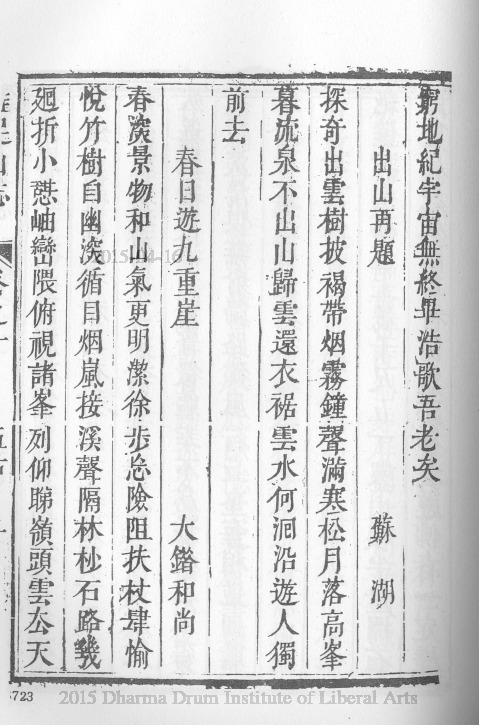 窮地紀宇宙無終畢浩歌吾老矣
出山再題
蘇湖
探奇出雲樹披褐帶烟霧鐘聲滿寒松月落高峯
暮流泉不出山歸雲還衣裾雲水何洄沿遊人獨
前去
春日遊九重崖
大錯和尚
春深景物和山氣更明潔徐步忘險阻扶杖肆愉
悅竹樹自幽深循目烟嵐接溪聲隔林杪石路幾
廻折小憇岫巒隈俯視諸峯列仰睇嶺頭雲公天
2015-04-16
5723
2015 Dharma Drum Institute of Liberal Arts